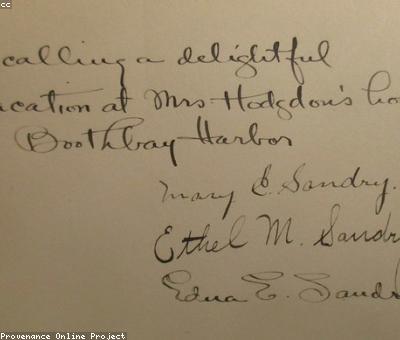 cc
calling a delightful
acation at Mrs Hodgdon's ho
Boothbay Harbor
Mary E. Sandry.
Ethel M. Sandr
Edna E. Sandr
Provenance Online Project